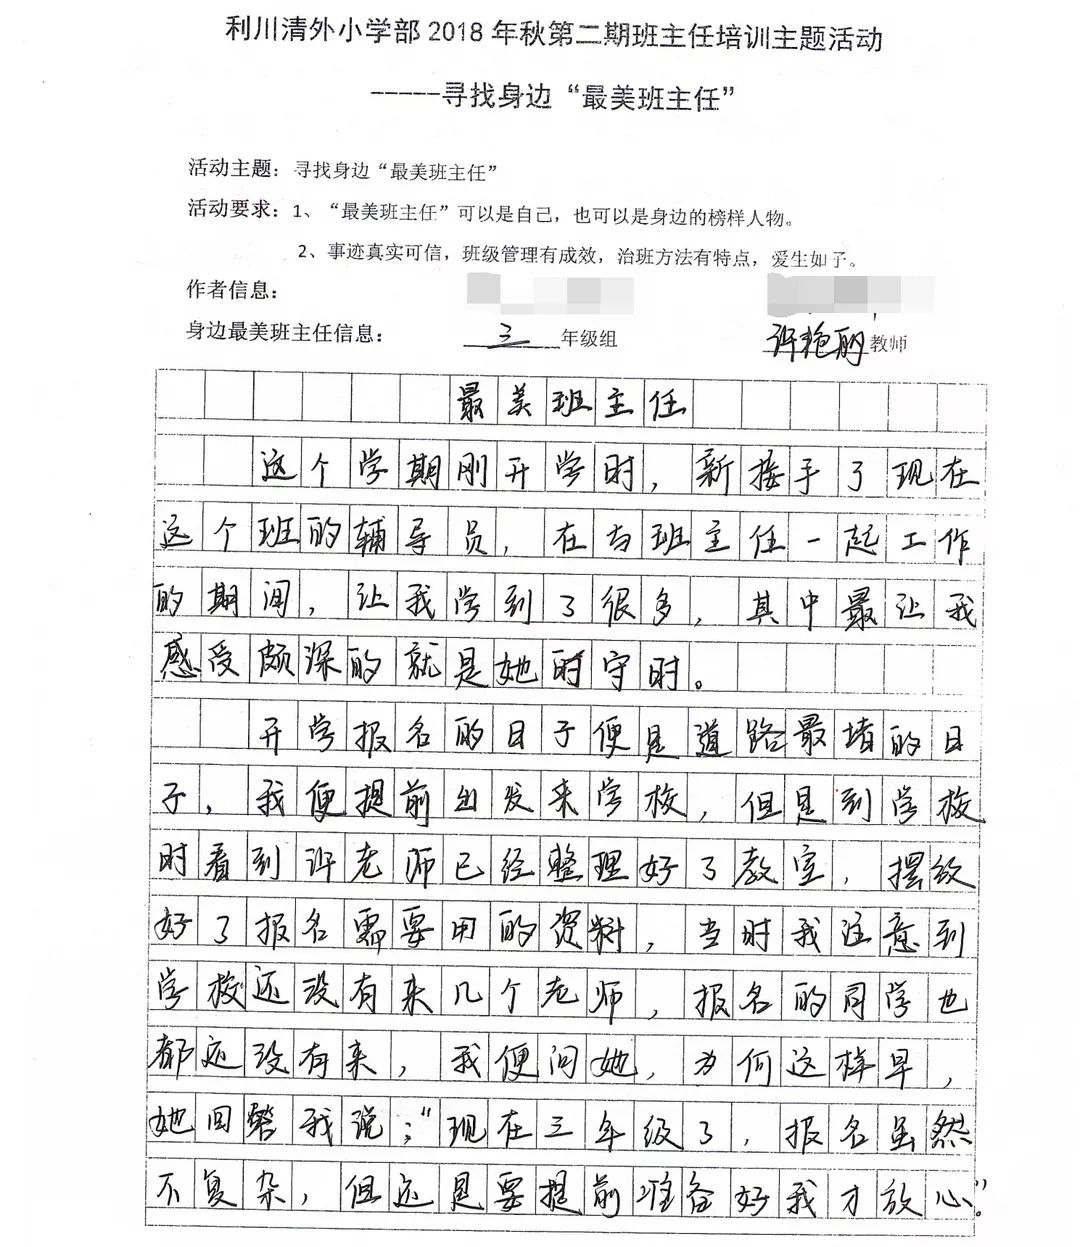 利川清外小学部2018年秋第二期班主任培训主题活动
-----寻找身边“最美班主任”
活动主题：寻找身边“最美班主任”
活动要求：1、“最美班主任”可以是自己，也可以是身边的榜样人物。
2、事迹真实可信，班级管理有成效，治班方法有特点，爱生如子。
作者信息：
身边最美班主任信息： 三 年级组 许艳丽教师
最美班主任
这个学期刚开学时，新接手了现在
这个班的辅导员，在与班主任一起工作
的期间，让我学到了很多，其中最让我
感受颇深的就是她的守时。
开学报名的日子便是道路最堵的日
子，我便提前出发来学校，但是到学校
时看到许老师已经整理好了教室，摆放
好了报名需要用的资料，当时我注意到
学校还没有来几个老师，报名的同学也
都还没有来，我便问她，为何这样早，
她回答我说：“现在三年级了，报名虽然
不复杂，但还是要提前准备好我才放心”。